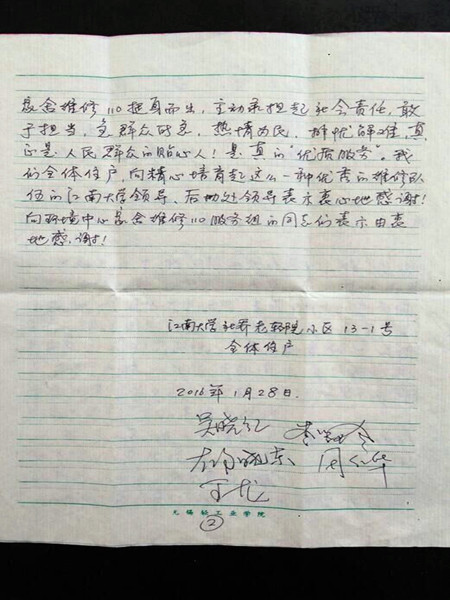 家舍维修110挺身而出，主动承担起社会责任，敢
于担当，急群众所急，热情为民，排忧解难，真
正是人民群众的贴心人！是真的“优质服务”。我
们全体住户，向精心培育起这么一种优秀的维修队
伍的江南大学领导、后勤处领导表示衷心地感谢！
向环境中心家舍维修110服务组的同志们表示由衷
地感谢！
江南大学社桥老轻院小区13-1号
全体住户
2016年1月28日.
吴晓红
无锡轻工业学院
②